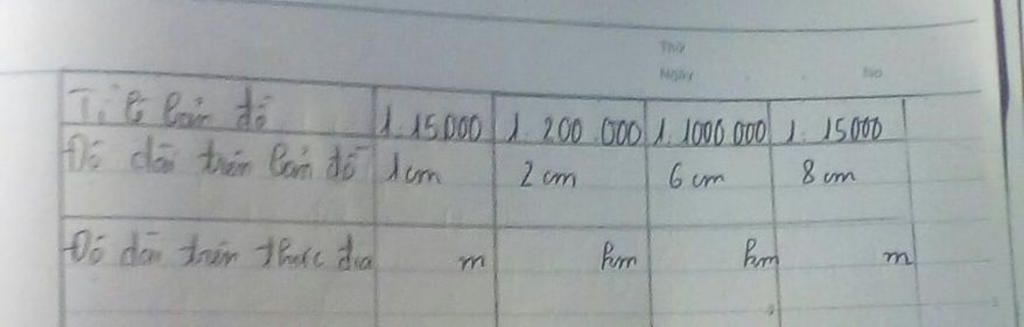 Thứ
Ngày No
Tỉ lệ bản đồ 1:15000 1:200 000 1:1000 000 1:15000
Độ dài trên bản đồ 1cm 2 cm 6 cm 8 cm
Độ dài trên thực địa m km km m